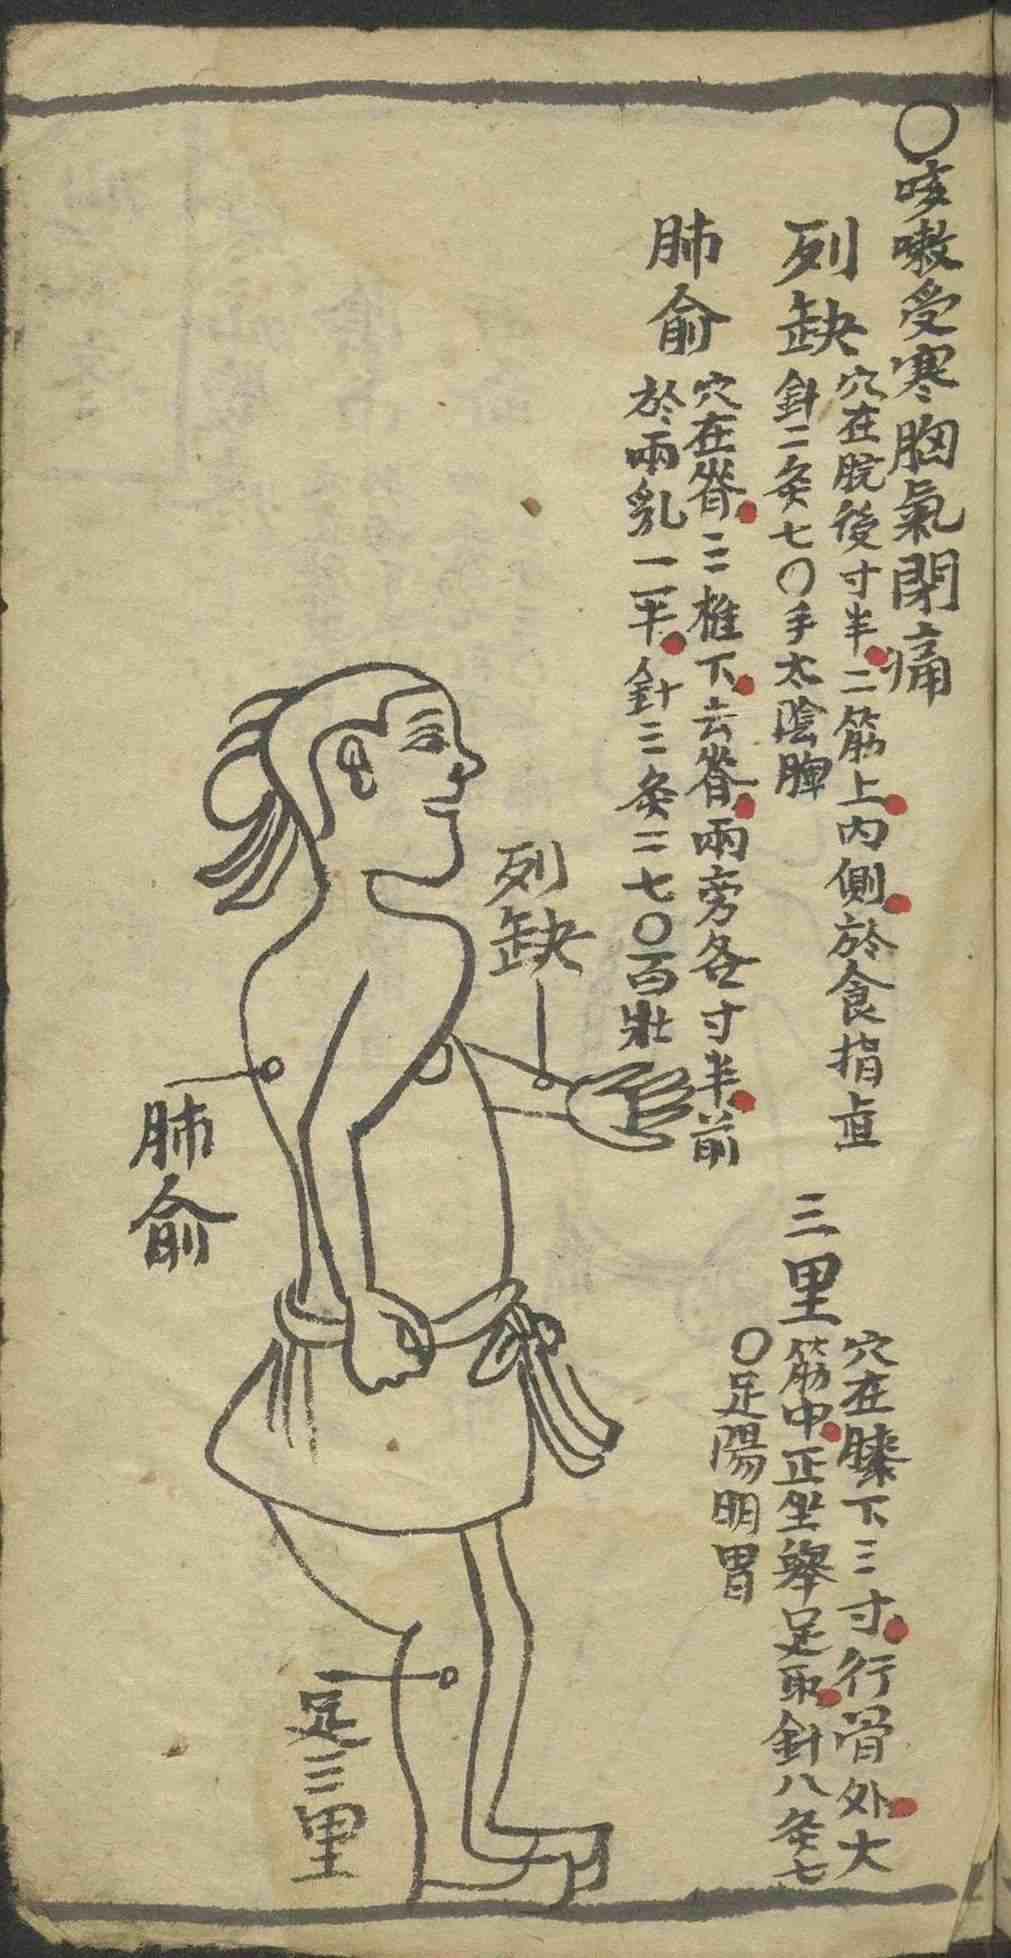 〇咳嗽受寒胸氣閉痛
列缺
穴在腕後寸半二筋上內側於食指直
針二灸七〇手太陰脾
肺俞
穴在脊三椎下云脊兩旁各寸半前
於兩乳一平針三灸二七〇百壯
三里
穴在膝下三寸行骨外大
筋中正坐舉足取針八灸七
〇足陽明胃
列缺
肺俞
足三里